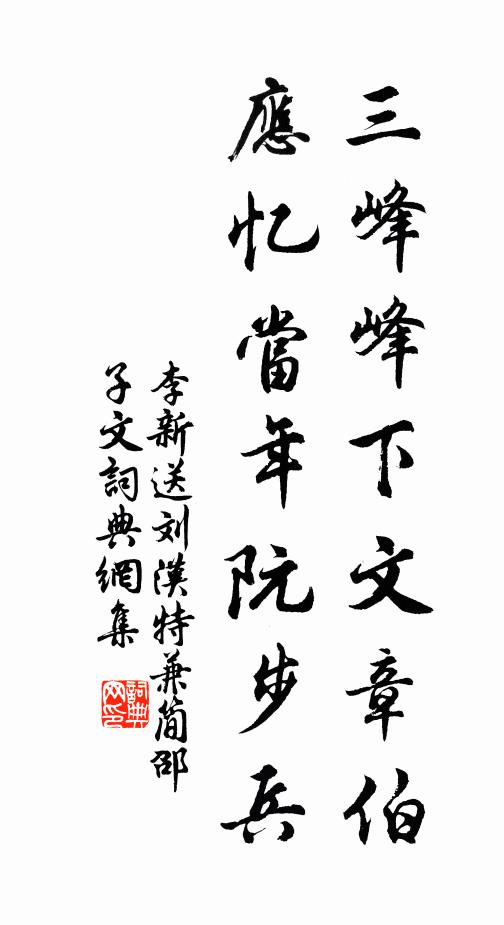 三峰峰下文章伯
應忆當年阮步兵
李新送刘漢特兼简邵
子文詞典網集
詞典
网印